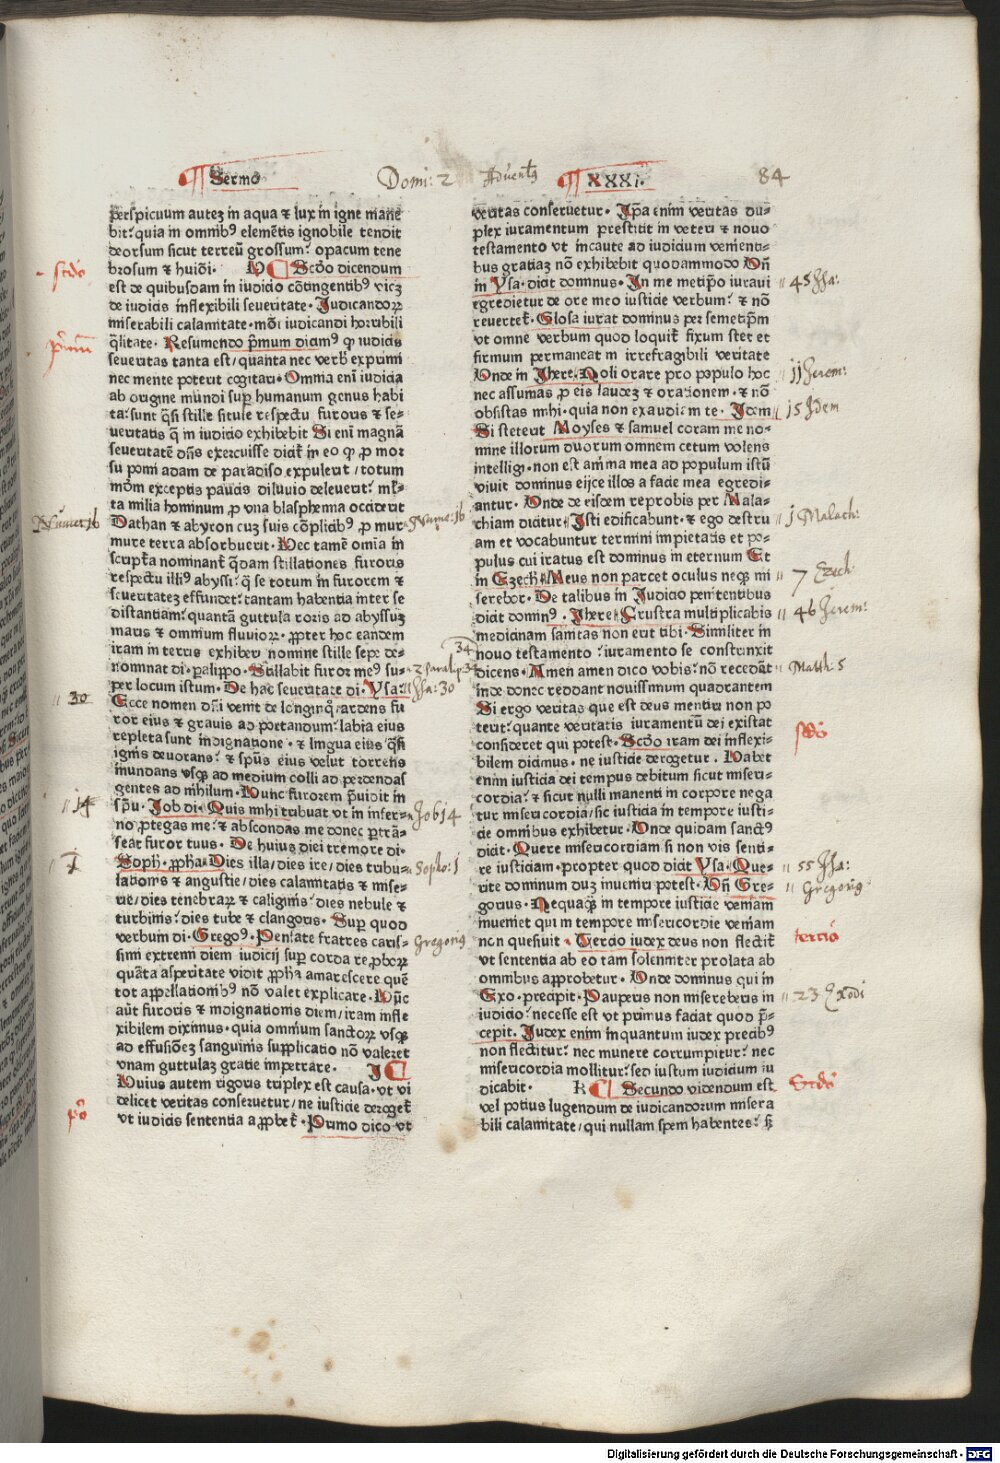 Sermo
Domi: 2 Aduentꝰ
XXXI.
84
perspicuum autez in aqua ⁊ lux in igne mane
bit? quia in omnibꝰ elemētis ignobile tendit
deorsum sicut terreū grossum? opacum tene
brosum ⁊ huiōi. H Scdo dicendum
est de quibusdam in iudicio cōtingentibꝰ vicz
de iudicis inflexibili seueritate. Judicandoꝝ
miserabili calamitate. mōi iudicandi horribili
qlitate. Resumendo pmum dicimꝰ ꝙ iudicis
seueritas tanta est/ quanta nec verbꝭ exprimi
nec mente poterit cogitari. Omnia eni iudicia
ab origine mundi sup humanum genus habi
ta: sunt qsi stille situle respectu furoris ⁊ se-
ueritatis q in iudicio exhibebit Si eni magnā
seueritatē dns exercuisse dicit in eo ꝙ ꝓ mor
su pomi adam de paradiso expulerit/ totum
mōm exceptis paucis diluuio deleuerit? ml-
ta milia hominum ꝓ vna blasphemia occiderit
Dathan ⁊ abyron cuz suis cōplicibꝰ ꝓ mur-
mure terra absorbuerit. Hec tamē omia in
scriptꝭa nominant qdam stillationes furoris
respectu illiꝰ abyssi? q se totum in furorem ⁊
seueritatez effundet? tantam habentia inter se
distantiam? quantā guttula roris ad abyssuz
maris ⁊ omnium fluuioꝝ. ꝓpter hoc eandem
iram in terris exhiberi nomine stille sepe de-
nominat di. palippo. Stillabit furor meꝰ su-
per locum istum. De hac seueritate di. Ysa.
Ecce nomen dni venit de longinq? ardens fu
ror eius ⁊ grauis ad portandum? labia eius
repleta sunt indignatione. ⁊ lingua eius qsi
ignis deuorans? ⁊ spūs eius velut torrens
inundans vsqꝫ ad medium colli ad perdendas
gentes ad nihilum. Hunc furorem puidit in
spu. Job di. Quis mihi tribuat vt in infer-
no ꝓtegas me? ⁊ abscondas me donec ptrā-
seat furor tuus. De huius diei tremore di.
Soph. ꝓpha. Dies illa/ dies ire/ dies tribu-
lationis ⁊ angustie/ dies calamitatis ⁊ mise-
rie/ dies tenebraꝝ ⁊ caliginis? dies nebule ⁊
turbinis? dies tube ⁊ clangoris. Sup quod
verbum di. Gregoꝰ. Pensate fratres caris-
simi extremi diem iudicij sup corda reꝓboꝝ
quāta asperitate vidit ꝓpha amarescere quē
tot appellationibꝰ nō valet explicare. Hūc
aūt furoris ⁊ indignationis diem/ iram infle
xibilem diximus. quia omnium sanctoꝝ vsqꝫ
ad effusiōez sanguinis supplicatio nō valeret
vnam guttulaz gratie impetrare. J
Huius autem rigoris triplex est causa. vt vi
delicet veritas conseruetur/ ne iusticie derogetꝭ
vt iudicis sententia aꝓbetꝭ. Primo dico vt
veritas conseruetur. Ipa enim veritas du-
plex iuramentum prestitit in veteri ⁊ nouo
testamento vt incaute ad iudicium venienti-
bus gratiaz nō exhibebit quodammodo Vn
in Ysa. dicit dominus. In me metipo iuraui
egredietur de ore meo iusticie verbum? ⁊ nō
reuertetꝭ. Glosa iurat dominus per semetipm
vt omne verbum quod loquitꝭ fixum stet et
firmum permaneat in irrefragibili veritate
Unde in Jhere. Noli orare pro populo hoc
nec assumas ꝓ eis laudez ⁊ orationem. ⁊ nō
obsistas mihi. quia non exaudiam te. Idem
Si steterit Moyses ⁊ samuel coram me no-
mine illorum duorum omnem cetum volens
intelligi. non est anima mea ad populum istū
viuit dominus eijce illos a facie mea egredi-
antur. Unde de eisdem reprobis per Mala-
chiam dicitur. Isti edificabunt. ⁊ ego destru
am et vocabuntur termini impietatis et po-
pulus cui iratus est dominus in eternum Et
in Ezech. Meus non parcet oculus neqꝫ mi
serebor. De talibus in Judicio penitentibus
dicit dominꝰ. Jhere. Frustra multiplicabis
medicinam sanitas non erit tibi. Similiter in
nouo testamento iuramento se constrinxit
dicens. Amen amen dico vobis? nō recedāt
inde donec reddant nouissimum quadrantem
Si ergo veritas que est deus mentiri non po
terit? quante veritatis iuramentū dei existat
consideret qui potest. Scdo iram dei inflexi-
bilem dicimus. ne iusticie derogetur. Habet
enim iusticia dei tempus debitum sicut miseri-
cordia? ⁊ sicut nulli manenti in corpore nega
tur misericordia/ sic iusticia in tempore iusti-
cie omnibus exhibetur. Unde quidam sanctꝰ
dicit. Quere misericordiam si non vis senti-
re iusticiam. propter quod dicit Ysa. Que-
rite dominum duz inueniri potest. Vn Gre-
gorius. Nequaqꝫ in tempore iusticie veniam
inueniet qui in tempore misericordie veniam
non quesiuit. Tercio iudex deus non flectitꝭ
vt sententia ab eo tam solenniter prolata ab
omnibus approbetur. Unde dominus qui in
Exo. precipit. Pauperis non misereberis in
iudicio? necesse est vt primus faciat quod p-
cepit. Judex enim inquantum iudex precibꝰ
non flectitur? nec munere corrumpitur? nec
misericordia mollitur? sed iustum iudicium iu
dicabit. K Secundo videndum est
vel potius lugendum de iudicandorum misera
bili calamitate/ qui nullam spem habentes?
scdo
primū
Numer: 16
30
14
1
po
Nume: 16
34
2 paralip: 34
Jsa: 30
Job 14
Sopho: 1
Gregoriꝰ
45 Jsa:
11 Jerem:
15 Jdem
1 Malach:
7 Ezech
46 Jerem:
Matth: 5
scdo
55 Jsa:
Gregoriꝰ
tercio
23 Exodi
Scdo
Digitalisierung gefördert durch die Deutsche Forschungsgemeinschaft - DFG